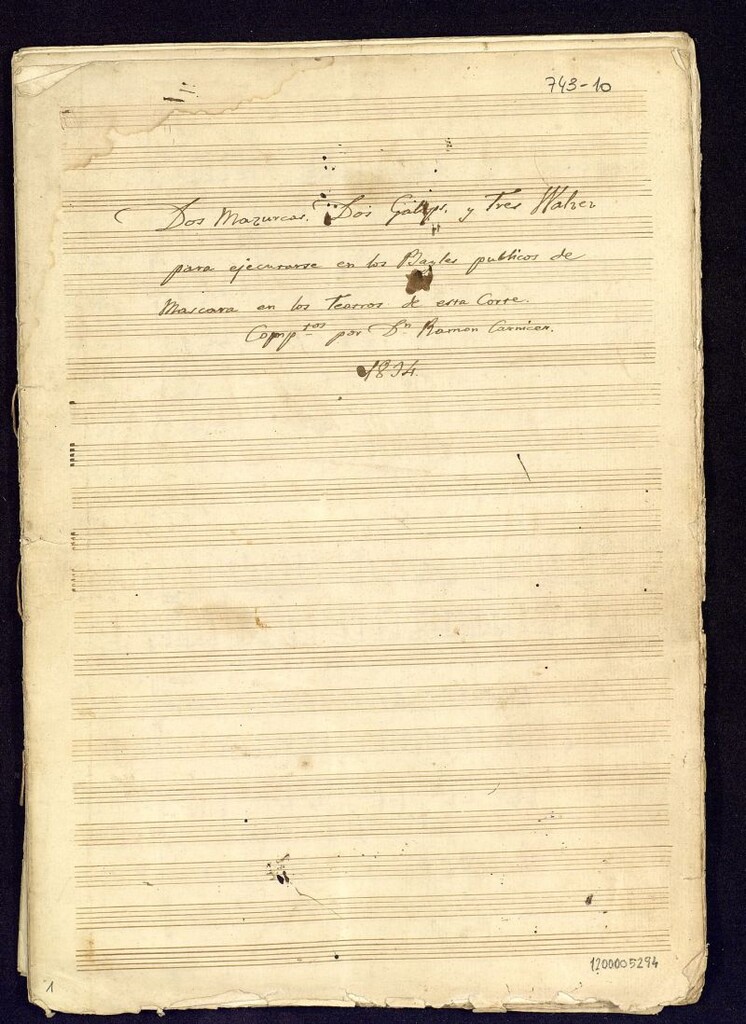 743-10
Dos Mazurcas. Dos Galops. y Tres Walzes
para ejecutarse en los Bayles publicos de
Mascara en los Teatros de esta Corte.
Comp.tos por Dn Ramon Carnicer.
1834.
1200005294
1